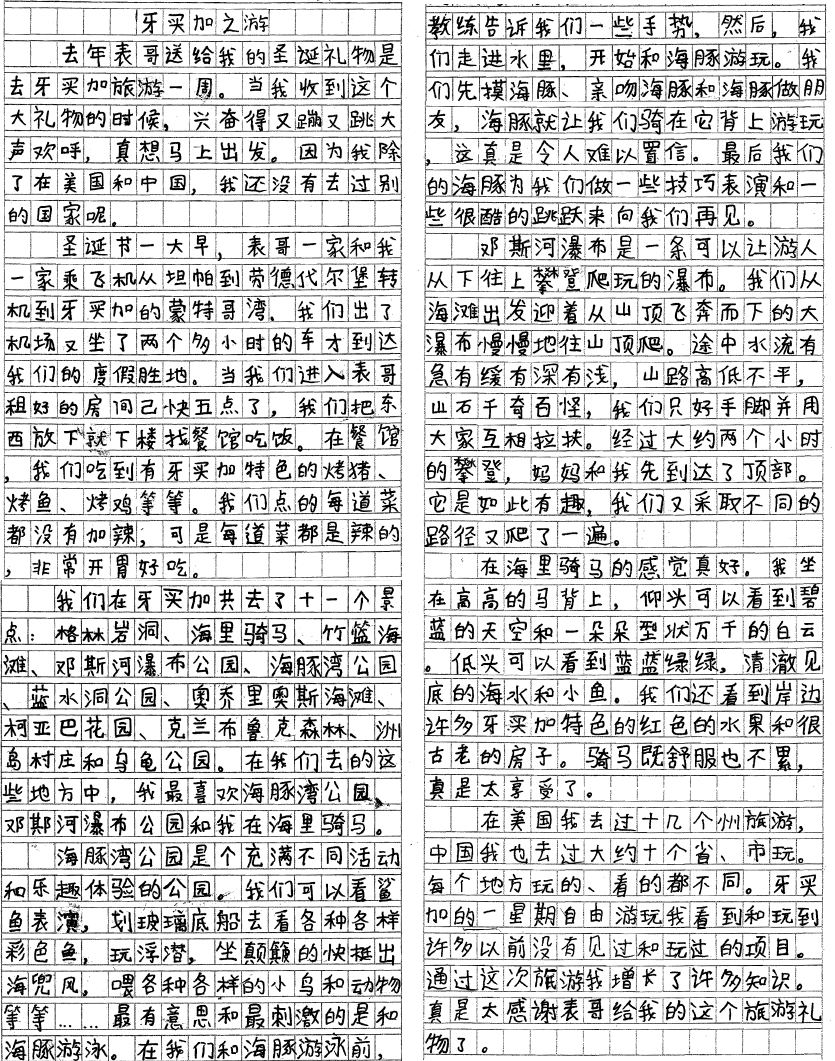 牙买加之游
去年表哥送给我的圣诞礼物是
去牙买加旅游一周。当我收到这个
大礼物的时候，兴奋得又蹦又跳大
声欢呼，真想马上出发。因为我除
了在美国和中国，我还没有去过别
的国家呢。
圣诞节一大早，表哥一家和我
一家乘飞机从坦帕到劳德代尔堡转
机到牙买加的蒙特哥湾。我们出了
机场又坐了两个多小时的车才到达
我们的度假胜地。当我们进入表哥
租好的房间已快五点了，我们把东
西放下就下楼找餐馆吃饭。在餐馆
，我们吃到有牙买加特色的烤猪、
烤鱼、烤鸡等等。我们点的每道菜
都没有加辣，可是每道菜都是辣的
，非常开胃好吃。
我们在牙买加共去了十一个景
点：格林岩洞、海里骑马、竹篮海
滩、邓斯河瀑布公园、海豚湾公园
、蓝水洞公园、奥乔里奥斯海滩、
柯亚巴花园、克兰布鲁克森林、洲
岛村庄和乌龟公园。在我们去的这
些地方中，我最喜欢海豚湾公园、
邓斯河瀑布公园和我在海里骑马。
海豚湾公园是个充满不同活动
和乐趣体验的公园。我们可以看鲨
鱼表演，划玻璃底船去看各种各样
彩色鱼，玩浮潜，坐颠簸的快艇出
海兜风。喂各种各样的小鸟和动物
等等……最有意思和最刺激的是和
海豚游泳。在我们和海豚游泳前，
教练告诉我们一些手势，然后，我
们走进水里，开始和海豚游玩。我
们先摸海豚、亲吻海豚和海豚做朋
友，海豚就让我们骑在它背上游玩
，这真是令人难以置信。最后我们
的海豚为我们做一些技巧表演和一
些很酷的跳跃来向我们再见。
邓斯河瀑布是一条可以让游人
从下往上攀登爬玩的瀑布。我们从
海滩出发迎着从山顶飞奔而下的大
瀑布慢慢地往山顶爬。途中水流有
急有缓有深有浅，山路高低不平，
山石千奇百怪，我们只好手脚并用
大家互相拉扶。经过大约两个小时
的攀登，妈妈和我先到达了顶部。
它是如此有趣，我们又采取不同的
路径又爬了一遍。
在海里骑马的感觉真好。我坐
在高高的马背上，仰头可以看到碧
蓝的天空和一朵朵型状万千的白云
。低头可以看到蓝蓝绿绿，清澈见
底的海水和小鱼。我们还看到岸边
许多牙买加特色的红色的水果和很
古老的房子。骑马既舒服也不累，
真是太享受了。
在美国我去过十几个州旅游，
中国我也去过大约十个省、市玩。
每个地方玩的、看的都不同。牙买
加的一星期自由游玩我看到和玩到
许多以前没有见过和玩过的项目。
通过这次旅游我增长了许多知识。
真是太感谢表哥给我的这个旅游礼
物了。